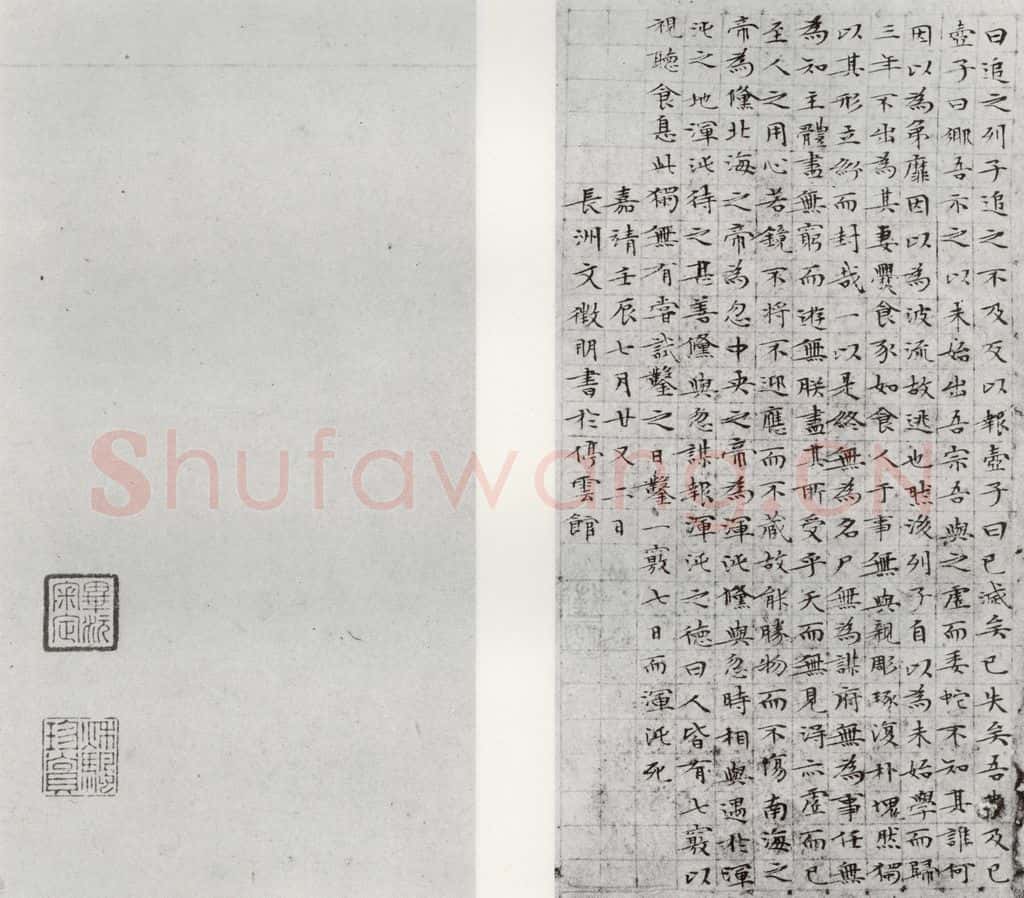 曰追之列子追之不及反以報壺子曰已滅矣已失矣吾弗及已
壺子曰鄉吾示之以未始出吾宗吾與之虛而委蛇不知其誰何
因以為弟靡因以為波流故逃也然後列子自以為未始學而歸
三年不出為其妻爨食豕如食人于事無與親彫琢復朴塊然獨
以其形立紛而封哉一以是終無為名尸無為謀府無為事任無
為知主體盡無窮而遊無朕盡其所受乎天而無見得亦虛而已
至人之用心若鏡不將不迎應而不藏故能勝物而不傷南海之
帝為儵北海之帝為忽中央之帝為渾沌儵與忽時相與遇於渾
沌之地渾沌待之甚善儵與忽謀報渾沌之德曰人皆有七竅以
視聽食息此獨無有嘗試鑿之日鑿一竅七日而渾沌死
嘉靖壬辰七月廿又日
長洲文徵明書於停雲館
畢沅宷定
秋颿珍賞
Shufawang.CN